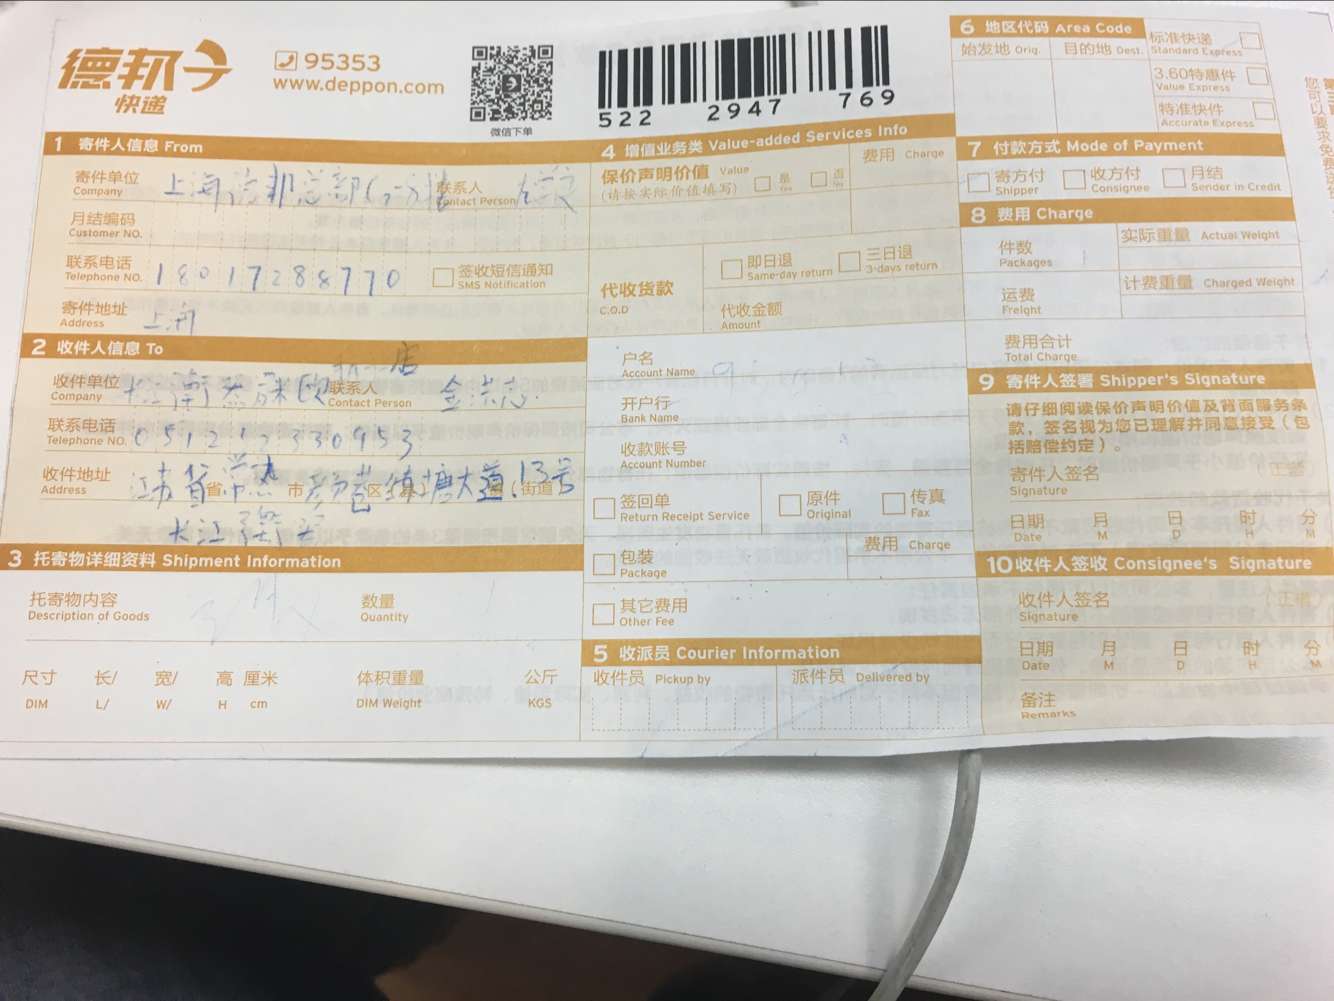 德邦
快递
95353
www.deppon.com
微信下单
522 2947 769
1 寄件人信息 From
寄件单位
Company
联系人
Contact Person
月结编码
Customer NO.
联系电话
Telephone NO.
18017288770
签收短信通知
SMS Notification
寄件地址
Address
上海
2 收件人信息 To
收件单位
Company
联系人
Contact Person
联系电话
Telephone NO.
收件地址
Address
省
市
区
大道
13号
(街道)
3 托寄物详细资料 Shipment Information
托寄物内容
Description of Goods
数量
Quantity
尺寸 长/ 宽/ 高 厘米
DIM L/ W/ H cm
体积重量
DIM Weight
公斤
KGS
4 增值业务类 Value-added Services Info
保价声明价值 Value
(请按实际价值填写)
是
Yes
否
No
费用 Charge
代收货款
C.O.D
即日退
Same-day return
三日退
3-days return
代收金额
Amount
户名
Account Name
开户行
Bank Name
收款账号
Account Number
签回单
Return Receipt Service
原件
Original
传真
Fax
包装
Package
费用
Charge
其它费用
Other Fee
5 收派员 Courier Information
收件员 Pickup by
派件员 Delivered by
6 地区代码 Area Code
始发地 Orig.
目的地 Dest.
标准快递
Standard Express
3.60特惠件
Value Express
特准快件
Accurate Express
7 付款方式 Mode of Payment
寄方付
Shipper
收方付
Consignee
月结
Sender in Credit
8 费用 Charge
件数
Packages
实际重量 Actual Weight
运费
Freight
计费重量 Charged Weight
费用合计
Total Charge
9 寄件人签署 Shipper's Signature
请仔细阅读保价声明价值及背面服务条
款,签名视为您已理解并同意接受(包
括赔偿约定)。
寄件人签名
Signature
日期 月 日 时 分
Date M D H M
10 收件人签收 Consignee's Signature
收件人签名
Signature
日期 月 日 时 分
Date M D H M
备注
Remarks